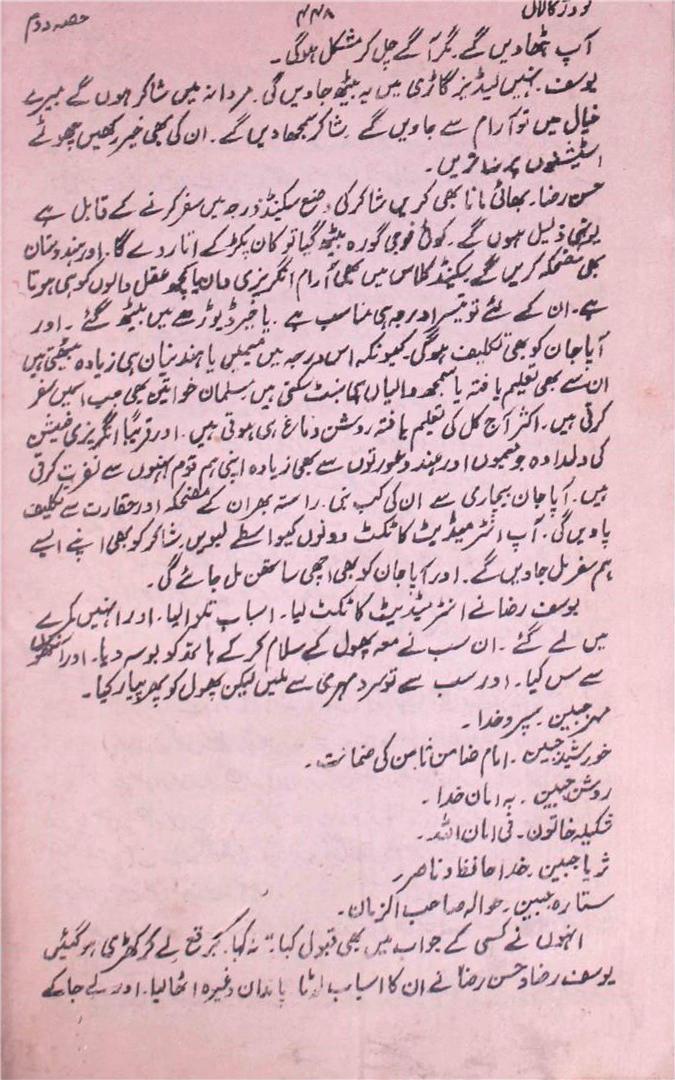 گودڑ کا لال ۴۴۸ حصہ دوم
آپ بٹھا دیں گے۔ مگر آگے چل کر مشکل ہوگی۔
یوسف۔ نہیں لیڈیز گاڑی میں یہ بیٹھ جاویں گی۔ مردانہ میں شاکر ہوں گے میرے
خیال میں تو آرام سے جاویں گے۔ شاکر سمجھا دیں گے۔ ان کی بھی خبر رکھیں چھوٹے
اسٹیشنوں پر نہ اتریں۔
حسن رضا۔ بھائی مانا بھی کریں شاکر کی وضع سکینڈ درجہ میں سفر کرنے کے قابل ہے
یونہی ذلیل ہوں گے۔ کوئی فوجی گورہ بیٹھ گیا تو کان پکڑ کے اتار دے گا۔ اور ہندوستان
بھی مضحکہ کریں گے سکینڈ کلاس میں بھی آرام انگریزی دان یا کچھ عقل والوں کو ہی ہوتا
ہے۔ ان کے لئے تو تیسرا درجہ ہی مناسب ہے۔ یا خیر ڈیوڑھے میں بیٹھ گئے۔ اور
آپا جان کو بھی تکلیف ہوگی۔ کیونکہ اس درجہ میں میمیں یا ہندنیان ہی زیادہ بیٹھتی ہیں
ان سے بھی تعلیم یافتہ یا سمجھ والیاں ہی نبٹ سکتی ہیں مسلمان خواتین بھی جب اسمیں سفر
کرتی ہیں۔ اکثر آج کل کی تعلیم یافتہ روشن دماغ ہی ہوتی ہیں۔ اور قریباً انگریزی فیشن
کی دلدادہ جو میموں اور ہندو عورتوں سے بھی زیادہ اپنی ہم قوم بہنوں سے نفرت کرتی
ہیں۔ آپا جان بیچاری سے ان کی کب بنی۔ راستہ بھر ان کے مضحکہ اور حقارت سے تکلیف
پاویں گی۔ آپ انٹر میڈیٹ کا ٹکٹ دونوں کیواسطے لیویں۔ شاکر کو بھی اپنے ایسے
ہم سفر مل جاویں گے۔ اور آپا جان کو بھی اچھی ساتھن مل جائے گی۔
یوسف رضا نے انٹر میڈیٹ کا ٹکٹ لیا۔ اسباب تلوالیا۔ اور انہیں کمرے
میں لے گئے۔ ان سب نے معہ پھول کے سلام کر کے ہاتھ کو بوسہ دیا۔ اور آنکھوں
سے مس کیا۔ اور سب سے تو سرد مہری سے ملیں لیکن پھول کو پھر پیار کیا۔
مہر جبین۔ سپرد خدا۔
خورشید جبین۔ امام ضامن ثامن کی ضمانت۔
روشن جبین۔ بہ امان خدا۔
شکیلہ خاتون۔ فی امان اللہ۔
ثریا جبین۔ خدا حافظ و ناصر۔
ستارہ جبین۔ حوالہ صاحب الزمان۔
انہوں نے کسی کے جواب میں بھی قبول کیا نہ کہا۔ برقع لے کر کھڑی ہو گئیں
یوسف رضا و حسن رضا نے ان کا اسباب لوٹا پاندان وغیرہ اٹھالیا۔ اور لے جا کے